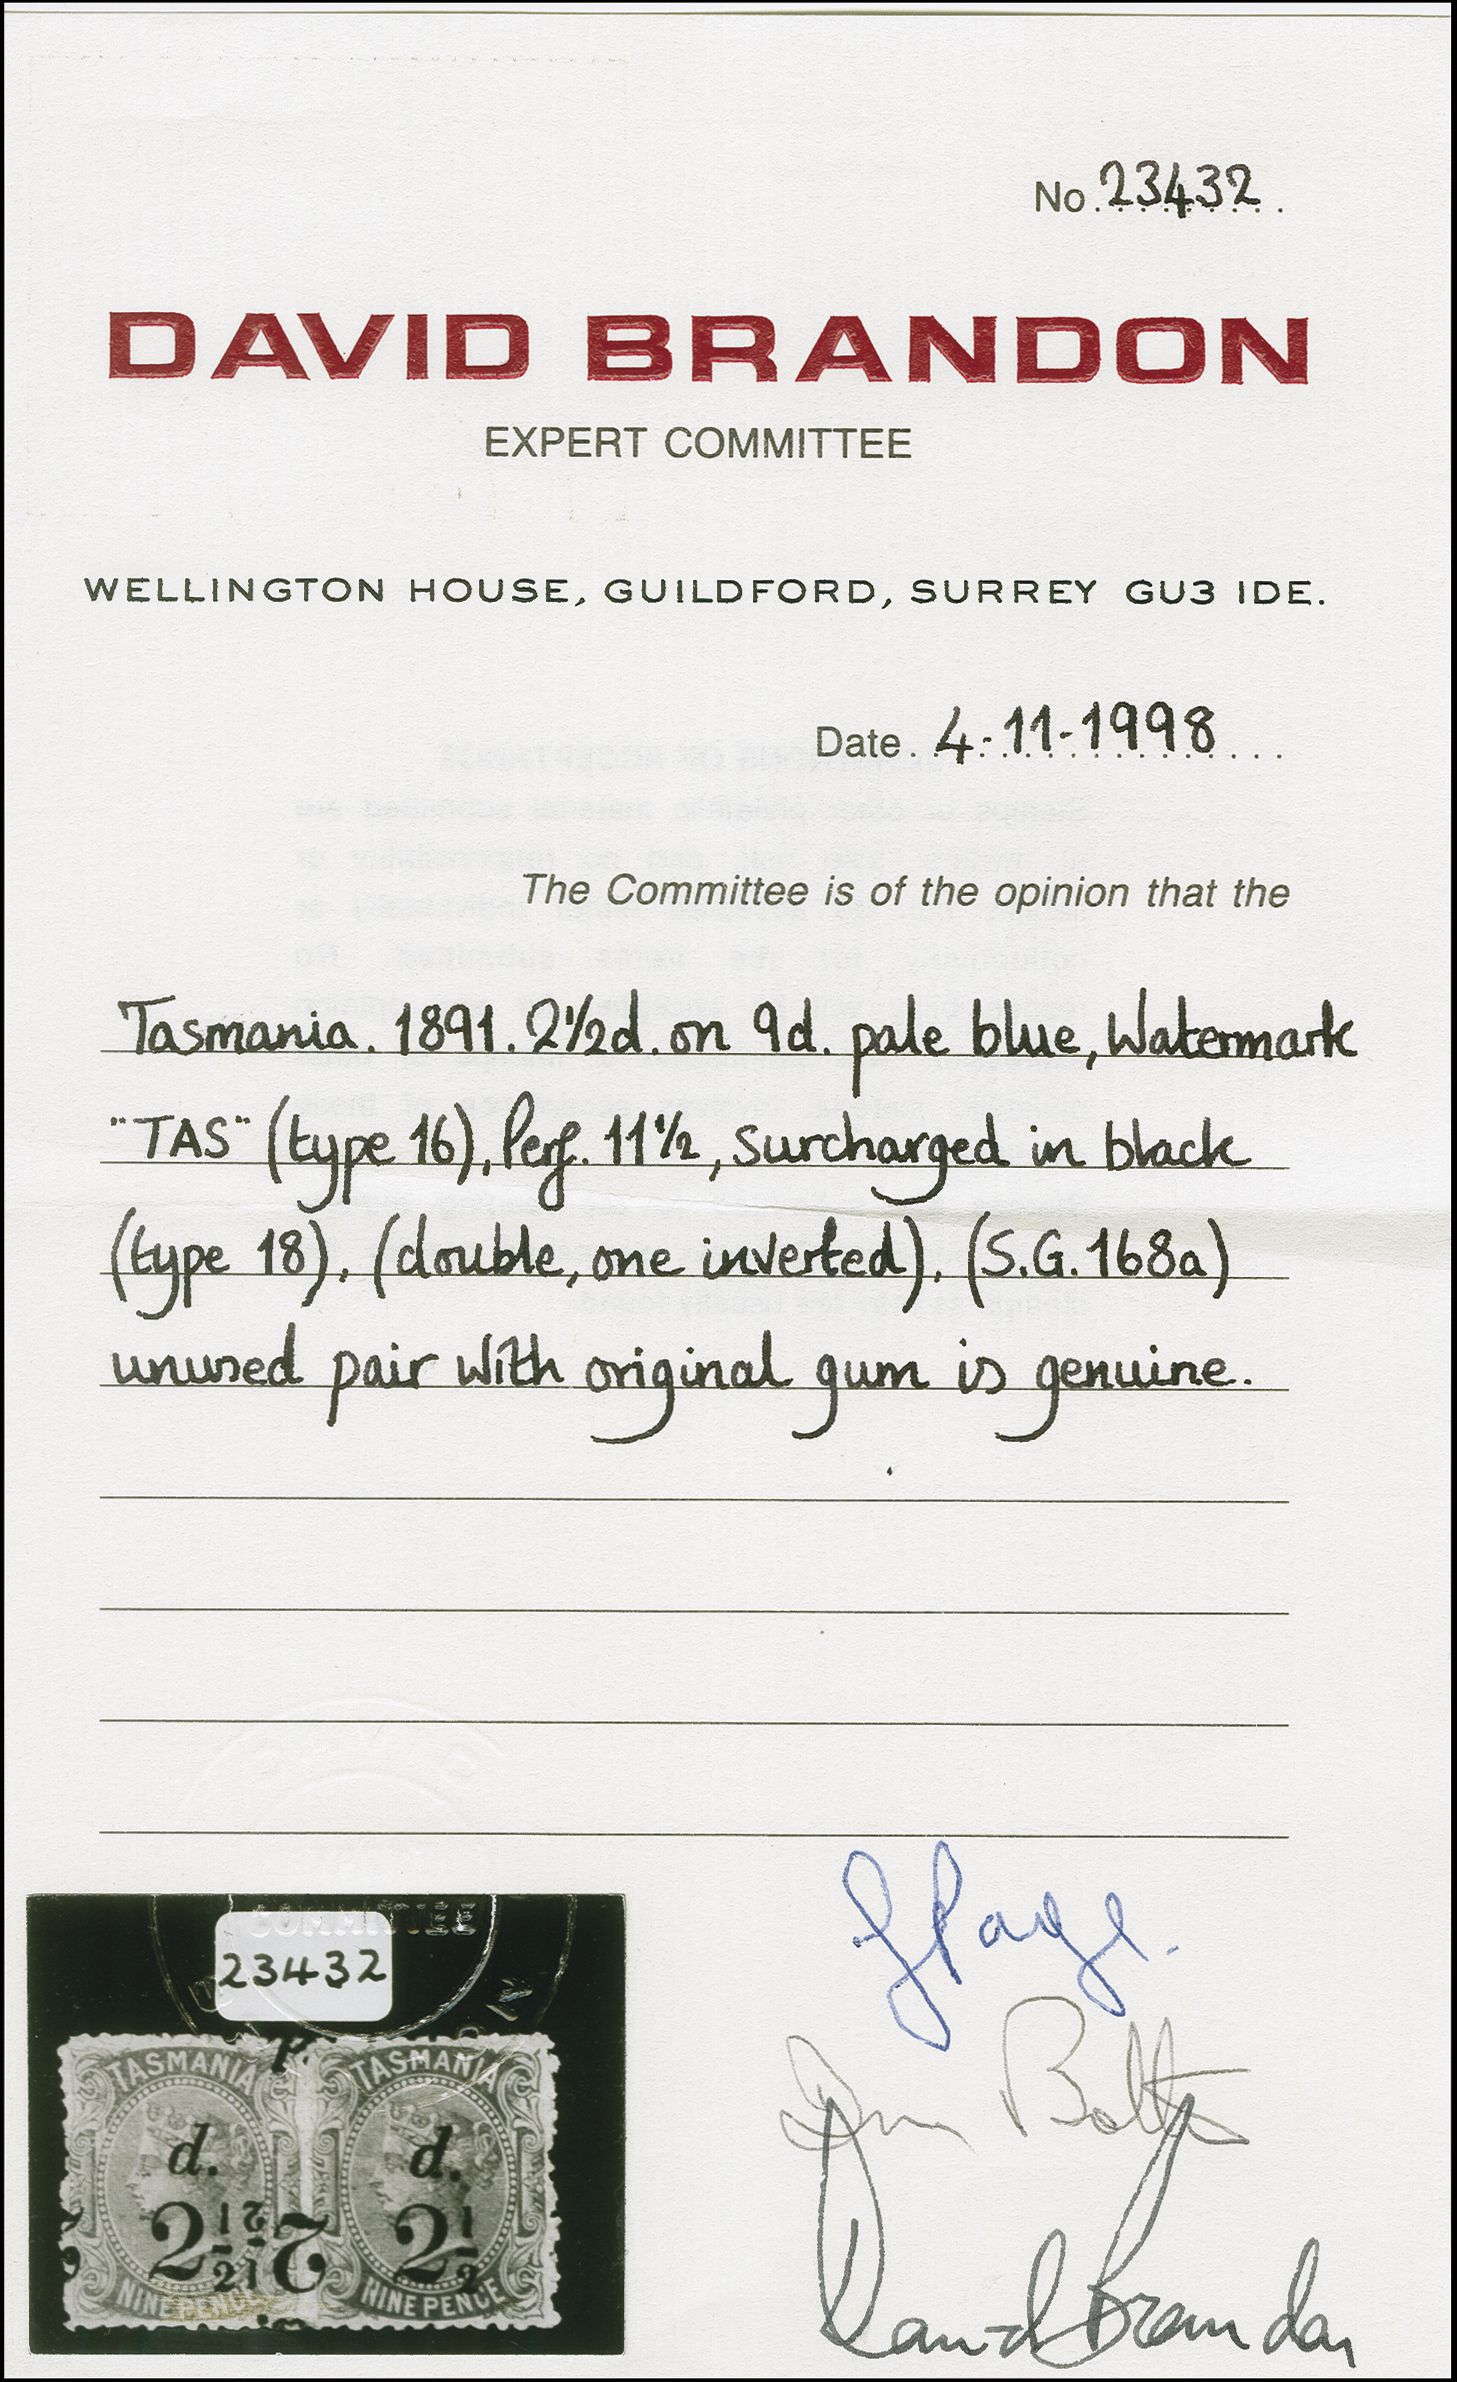 No. 23432
DAVID BRANDON
EXPERT COMMITTEE
WELLINGTON HOUSE, GUILDFORD, SURREY GU3 1DE.
Date. 4-11-1998
The Committee is of the opinion that the
Tasmania. 1891. 2½d. on 9d. pale blue, Watermark
"TAS" (type 16), Perf. 11½, surcharged in black
(type 18), (double, one inverted), (S.G. 168a)
unused pair with original gum is genuine.
COMMITTEE
23432
TASMANIA TASMANIA
d. d.
2½ 2 2½
NINE PENCE NINE PENCE
David Brandon